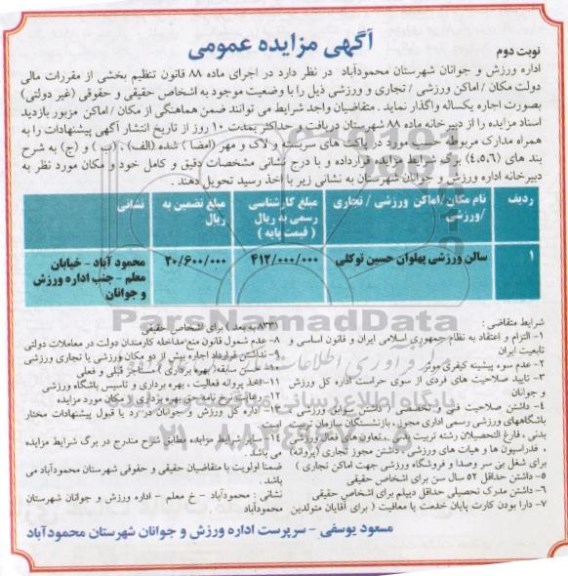 آگهی مزایده عمومی
نوبت دوم
اداره ورزش و جوانان شهرستان محمودآباد در نظر دارد در اجرای ماده ۸۸ قانون تنظیم بخشی از مقررات مالی
دولت مکان / اماکن ورزشی / تجاری و ورزشی ذیل را با وضعیت موجود به اشخاص حقیقی و حقوقی (غیر دولتی)
بصورت اجاره یکساله واگذار نماید . متقاضیان واجد شرایط می توانند ضمن هماهنگی از مکان / اماکن مزبور بازدید
اسناد مزایده را از دبیرخانه ماده ۸۸ شهرستان دریافت و حداکثر بمدت ۱۰ روز از تاریخ انتشار آگهی پیشنهادات را به
همراه مدارک مربوطه حسب مورد در پاکت های سربسته و لاک و مهر (امضا) شده (الف) ، (ب) و (ج) به شرح
بند های (۴،۵،۶) برگ شرایط مزایده قرارداده و با درج نشانی مشخصات دقیق و کامل خود و مکان مورد نظر به
دبیرخانه اداره ورزش و جوانان شهرستان به نشانی زیر با اخذ رسید تحویل دهند .
ردیف نام مکان /اماکن ورزشی / تجاری /ورزشی مبلغ کارشناسی رسمی به ریال (قیمت پایه) مبلغ تضمین به ریال نشانی
۱ سالن ورزشی پهلوان حسین توکلی ۴۱۲/۰۰۰/۰۰۰ ۲۰/۶۰۰/۰۰۰ محمود آباد - خیابان معلم - جنب اداره ورزش و جوانان
ParsNamadData
شرایط متقاضی :
۱- التزام و اعتقاد به نظام جمهوری اسلامی ایران و قانون اساسی و
تابعیت ایران
۲- عدم سوء پیشینه کیفری موثر
۳- تایید صلاحیت های فردی از سوی حراست اداره کل ورزش
و جوانان
۴- داشتن صلاحیت فنی و تخصصی ( داشتن سوابق ورزشی
باشگاههای ورزشی رسمی اداری مجوز، بازنشستگان سازمان تربیت
بدنی ، فارغ التحصیلان رشته تربیت بدنی ، تعاونی های فعال ورزشی
، فدراسیون ها و هیات های ورزشی ، داشتن مجوز تجاری (پروانه)
برای شغل بی سر وصدا و فروشگاه ورزشی جهت اماکن تجاری )
۵- داشتن حداقل ۵۲ سال سن برای اشخاص حقیقی
۶- داشتن مدرک تحصیلی حداقل دیپلم برای اشخاص حقیقی
۷- دارا بودن کارت پایان خدمت یا معافیت ( برای آقایان متولدین
۸۳۳۱ به بعد ) برای اشخاص حقیقی
۸- عدم شمول قانون منع مداخله کارمندان دولت در معاملات دولتی
۹- نداشتن قرارداد اجاره بیش از دو مکان ورزشی یا تجاری ورزشی
۱۰- حسن سابقه( بهره برداری ) مستاجر قبلی و فعلی
۱۱- اخذ پروانه فعالیت ، بهره برداری و تاسیس باشگاه ورزشی
۱۳- اداره کل ورزش و جوانان در رد یا قبول پیشنهادات مختار
است
۱۴- سایر شرایط مزایده مطابق شرح مندرج در برگ شرایط مزایده
می باشد .
ضمنا اولویت با متقاضیان حقیقی و حقوقی شهرستان محمودآباد می
باشد .
نشانی : محمودآباد - خ معلم - اداره ورزش و جوانان شهرستان
محمودآباد
مسعود یوسفی - سرپرست اداره ورزش و جوانان شهرستان محمودآباد